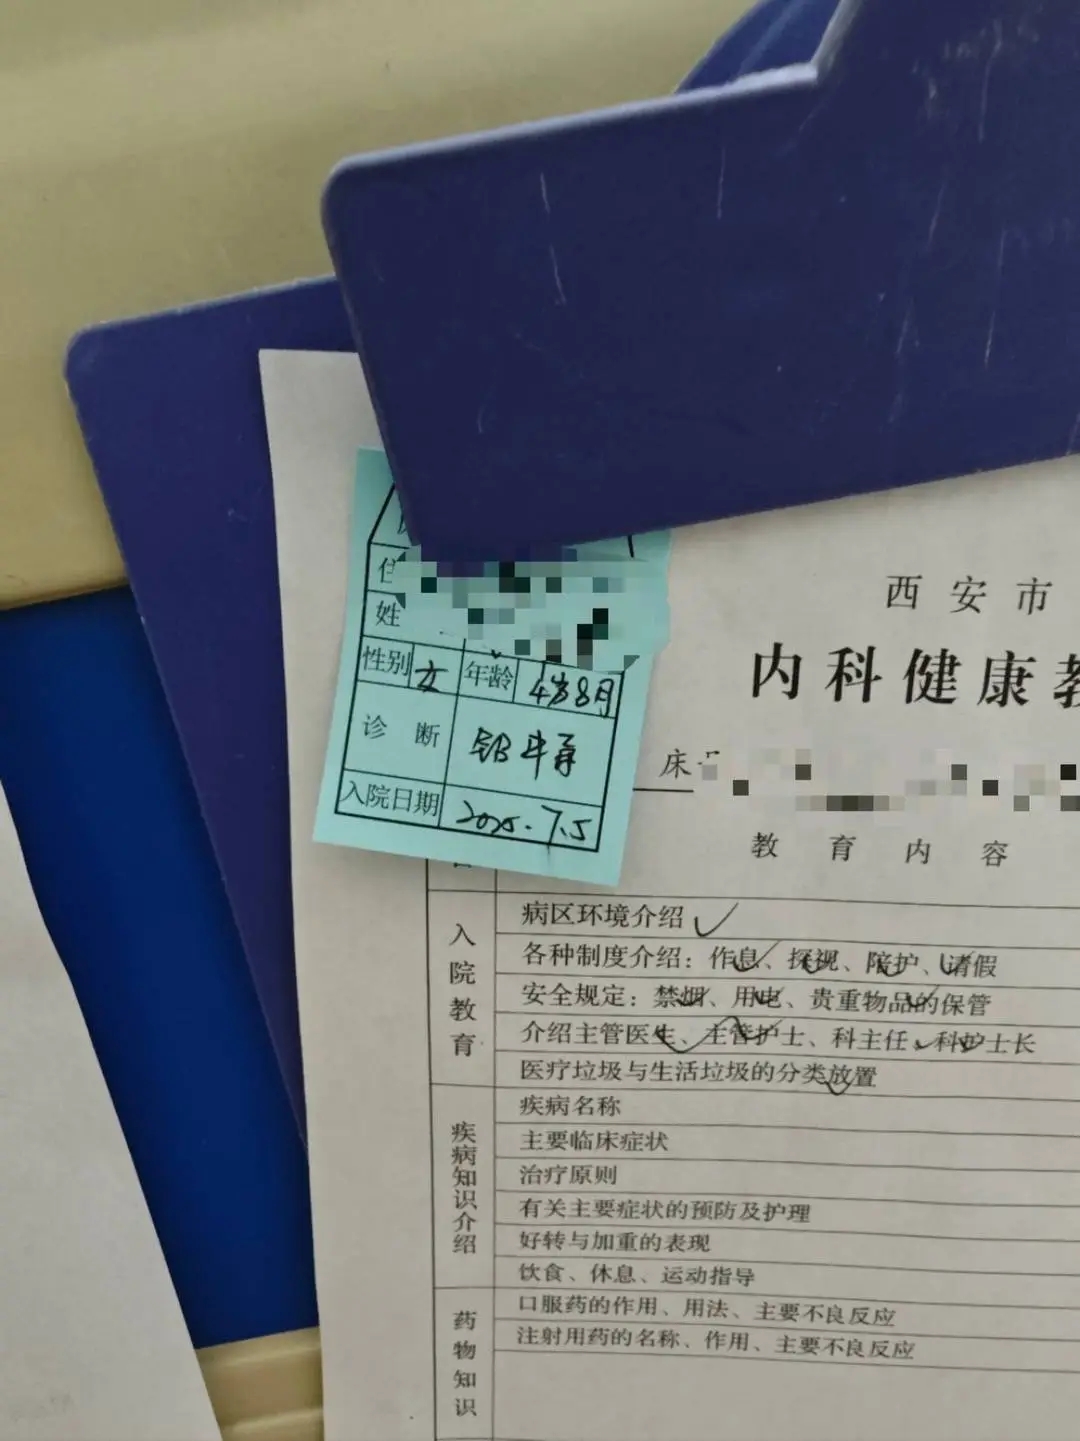 姓
性别 女 年龄 4岁8月
诊断 铅中毒
入院日期 2025.7.5
西安市
内科健康教
床号
教育内容
入院教育
病区环境介绍✓
各种制度介绍：作息、探视、陪护、请假
安全规定：禁烟、用电、贵重物品的保管
介绍主管医生、主管护士、科主任、科护士长
医疗垃圾与生活垃圾的分类放置
疾病知识介绍
疾病名称
主要临床症状
治疗原则
有关主要症状的预防及护理
好转与加重的表现
饮食、休息、运动指导
药物知识
口服药的作用、用法、主要不良反应
注射用药的名称、作用、主要不良反应